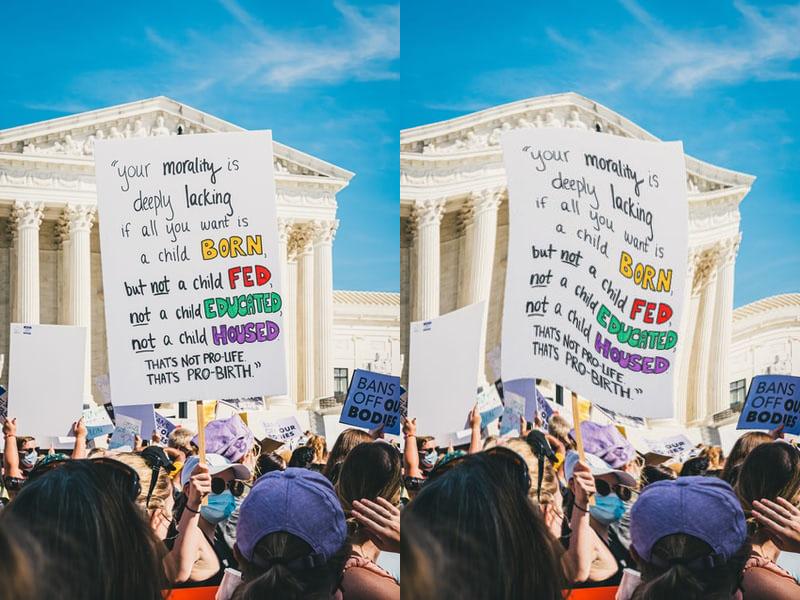 "your morality is
deeply lacking
if all you want is
a child BORN,
but not a child FED,
not a child EDUCATED,
not a child HOUSED
THAT'S NOT PRO-LIFE.
THAT'S PRO-BIRTH."
BANS
OFF OUR
BODIES
"your morality is
deeply lacking
if all you want is
a child BORN,
but not a child FED,
not a child EDUCATED,
not a child HOUSED
THAT'S NOT PRO-LIFE
THAT'S PRO-BIRTH."
BANS
OFF OUR
BODIES